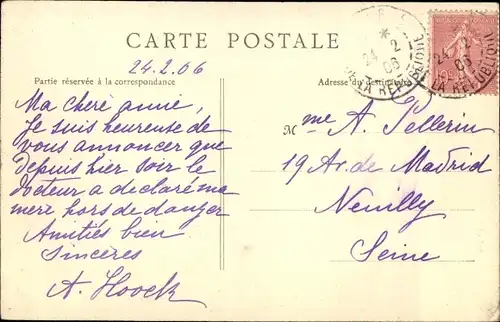 CARTE POSTALE
Partie réservée à la correspondance
Adresse du destinataire
24.2.06
Ma chère amie,
Je suis heureuse de
vous annoncer que
depuis hier soir le
docteur a déclaré ma
mère hors de danger
Amitiés bien
Sincères
A. Hoock
Mme A. Pellerin
19 Av. de Madrid
Neuilly
Seine
24 - 2
06
DE LA REPUBLIQUE
24 - 2
06
LA REPUBLIQUE